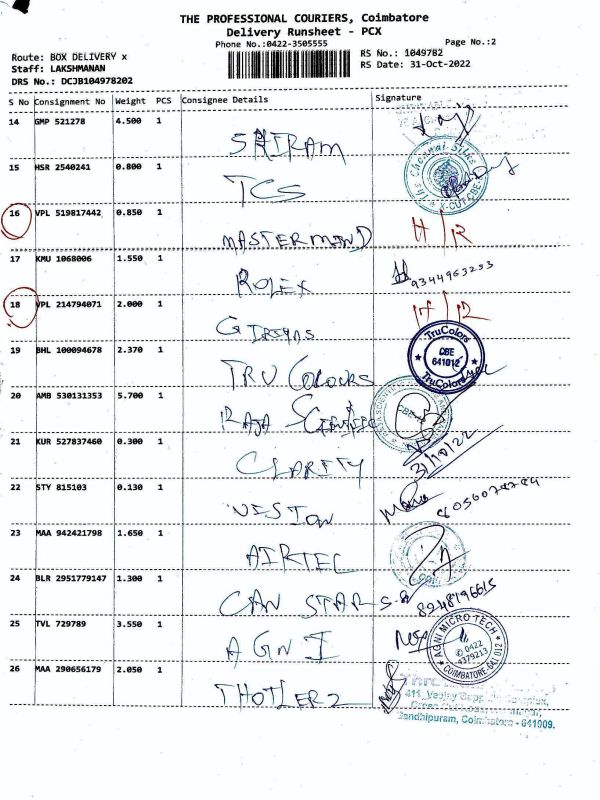 THE PROFESSIONAL COURIERS, Coimbatore
Delivery Runsheet - PCX
Phone No.:0422-3505555
Page No.:2
Route: BOX DELIVERY x
RS No.: 1049782
Staff: LAKSHMANAN
RS Date: 31-Oct-2022
DRS No.: DCJB104978202
S No Consignment No Weight PCS Consignee Details Signature
14 GMP 521278 4.500 1
SRIRAM
15 HSR 2540241 0.800 1
The Chennai Silks
X-CUT CBE
TCS
16 VPL 519817442 0.850 1
MASTERMIND H/R
17 KMU 1068006 1.550 1
ROLEX 9344963233
18 VPL 214794071 2.000 1 H/R
19 BHL 100094678 2.370 1
TruColors
CBE
641012
TruColors
TRU COLOURS
20 AMB 530131353 5.700 1
RAJA
21 KUR 527837460 0.300 1
31/10/22
CLARITY
22 STY 815103 0.130 1
23 MAA 942421798 1.650 1
AIRTEL
24 BLR 2951779147 1.300 1
CAN STAR 8248196615
25 TVL 729789 3.550 1
AGNI
AGNI MICRO TECH
0422
4379213
COIMBATORE-641 012
26 MAA 290656179 2.050 1
Gandhipuram, Coimbatore - 641009.